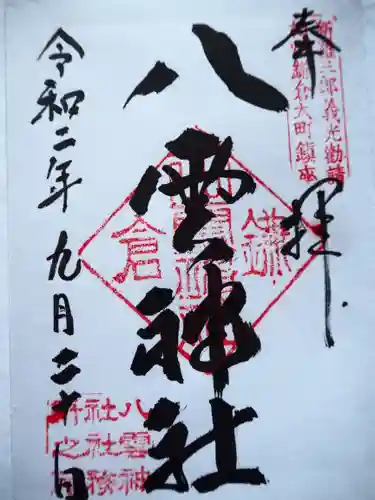 奉拝
新羅三郎義光勧請
鎌倉大町鎮座
八雲神社
鎌倉
八雲神
社社務
所之印
令和二年九月二十日